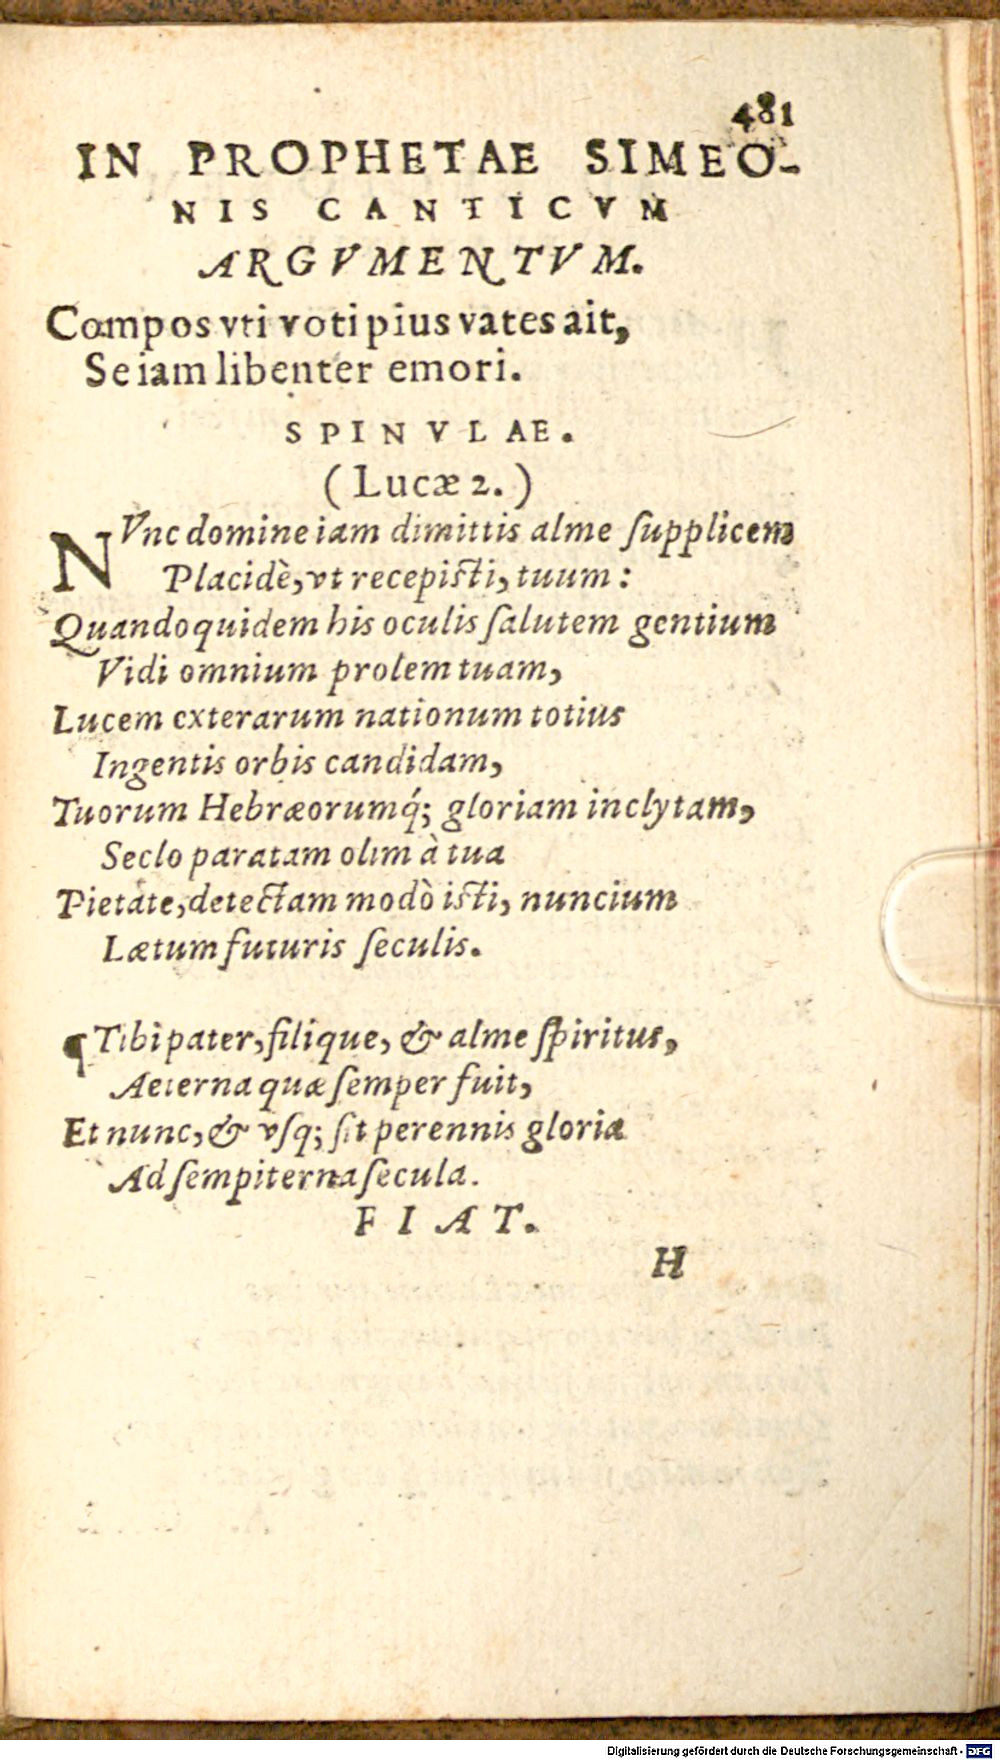 481
IN PROPHETAE SIMEO-
NIS CANTICVM
ARGVMENTVM.
Compos vti voti pius vates ait,
Se iam libenter emori.
SPINVLAE.
(Lucæ 2.)
NVnc domine iam dimittis alme ſupplicem
Placidè, vt recepiſti, tuum:
Quandoquidem his oculis ſalutem gentium
Vidi omnium prolem tuam,
Lucem exterarum nationum totius
Ingentis orbis candidam,
Tuorum Hebræorumq́; gloriam inclytam,
Seclo paratam olim à tua
Pietate, detectam modò iſti, nuncium
Lætum futuris ſeculis.
¶ Tibi pater, filique, & alme ſpiritus,
Aeterna quæ ſemper fuit,
Et nunc, & vſq; ſit perennis gloria
Ad ſempiterna ſecula.
FIAT.
H
Digitalisierung gefördert durch die Deutsche Forschungsgemeinschaft - DFG